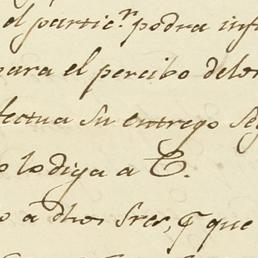 el partic.^n podra inf
para el percibo delos
fectua su entrego seg
o lo diga a E.
o a dhos Sres, q que